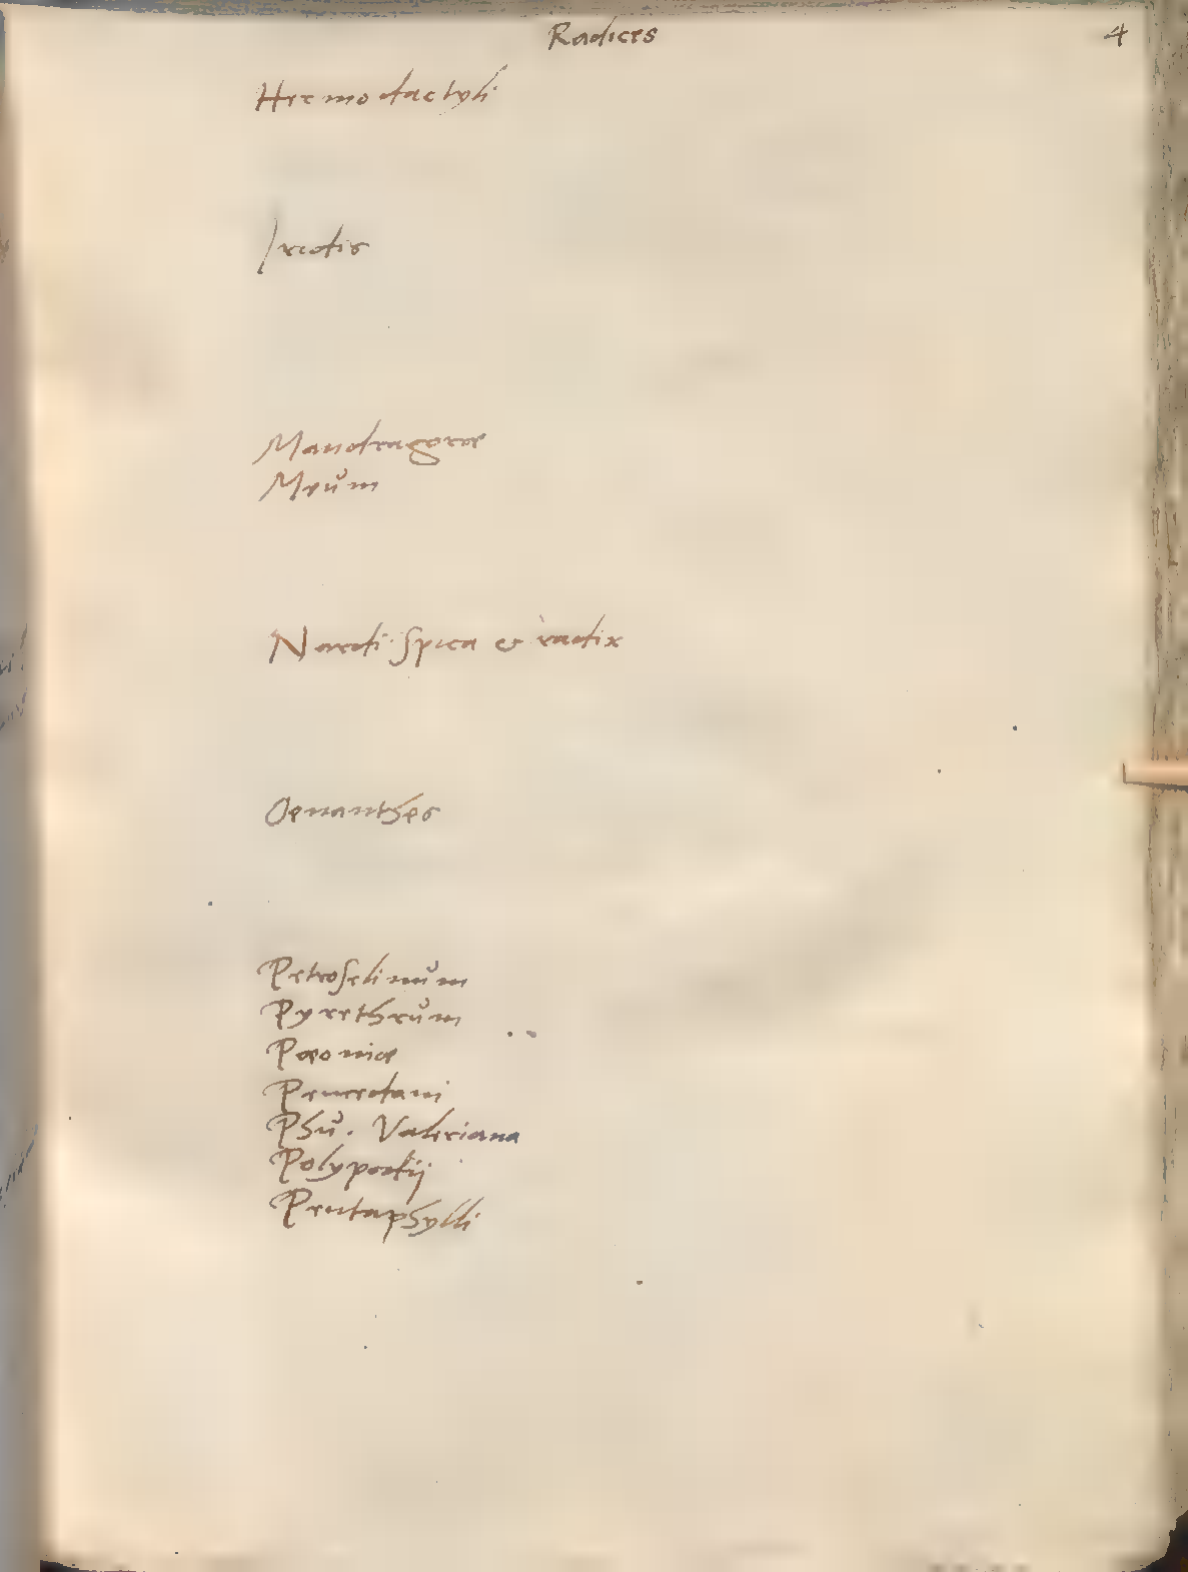 Radices 4
Hermodactyli
Ireos
Mandragoræ
Meum
Nardi spica & radix
Oenanthes
Petroselinum
Pyrethrum
Pæoniæ
Peucedani
Phu. Valeriana
Polypodij
Pentaphylli